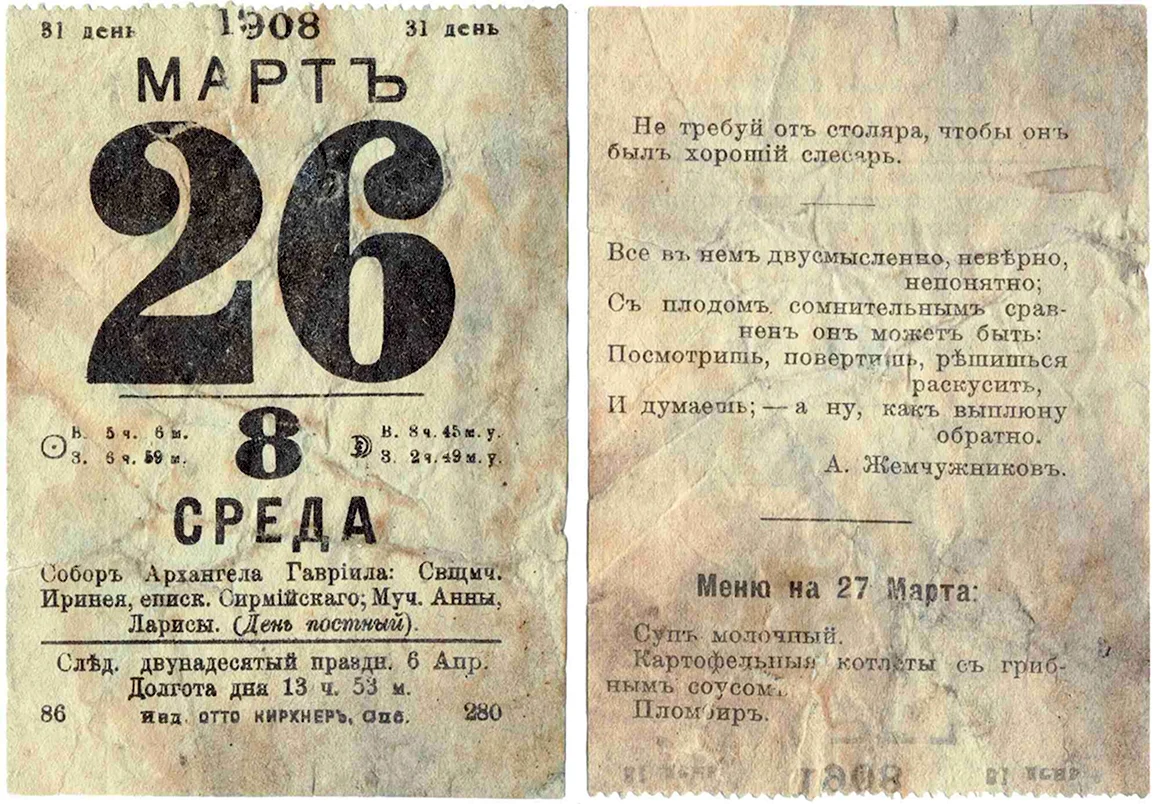 31 день 1908 31 день
МАРТЪ
26
В. 5 ч. 6 м. 8 В. 8 ч. 45 м. у.
З. 6 ч. 59 м. З. 2 ч. 49 м. у.
СРЕДА
Соборъ Архангела Гавріила: Свщмч.
Иринея, еписк. Сирмійскаго; Муч. Анны,
Ларисы. (День постный).
Слѣд. двунадесятый праздн. 6 Апр.
Долгота дня 13 ч. 53 м.
86 Изд. ОТТО КИРХНЕРЪ, Спб. 280
Не требуй отъ столяра, чтобы онъ
былъ хорошій слесарь.
Все въ немъ двусмысленно, невѣрно,
непонятно;
Съ плодомъ сомнительнымъ срав-
ненъ онъ можетъ быть:
Посмотришь, повертишь, рѣшишься
раскусить,
И думаешь; — а ну, какъ выплюну
обратно.
А. Жемчужниковъ.
Меню на 27 Марта:
Супъ молочный.
Картофельныя котлеты съ гриб-
нымъ соусомъ.
Пломбиръ.